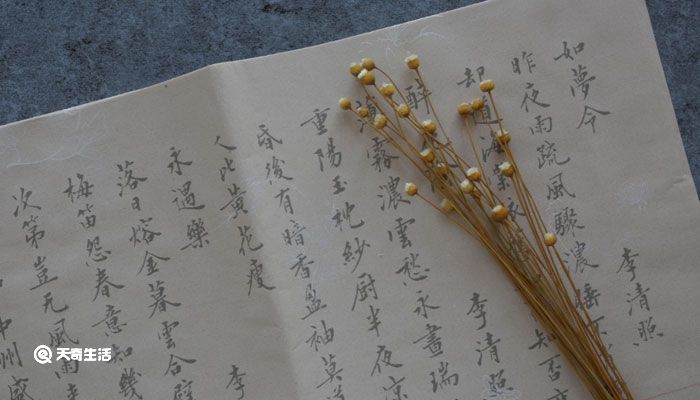 如夢令 李清照
昨夜雨疏風驟濃睡不
却道海棠依 知否
醉 李清照
薄霧濃雲愁永晝瑞
重陽玉枕紗厨半夜涼
昏後有暗香盈袖莫道
人比黃花瘦
永遇樂 李
落日熔金暮雲合璧
梅笛怨春意知幾
次第豈无風雨
中州盛
天奇生活